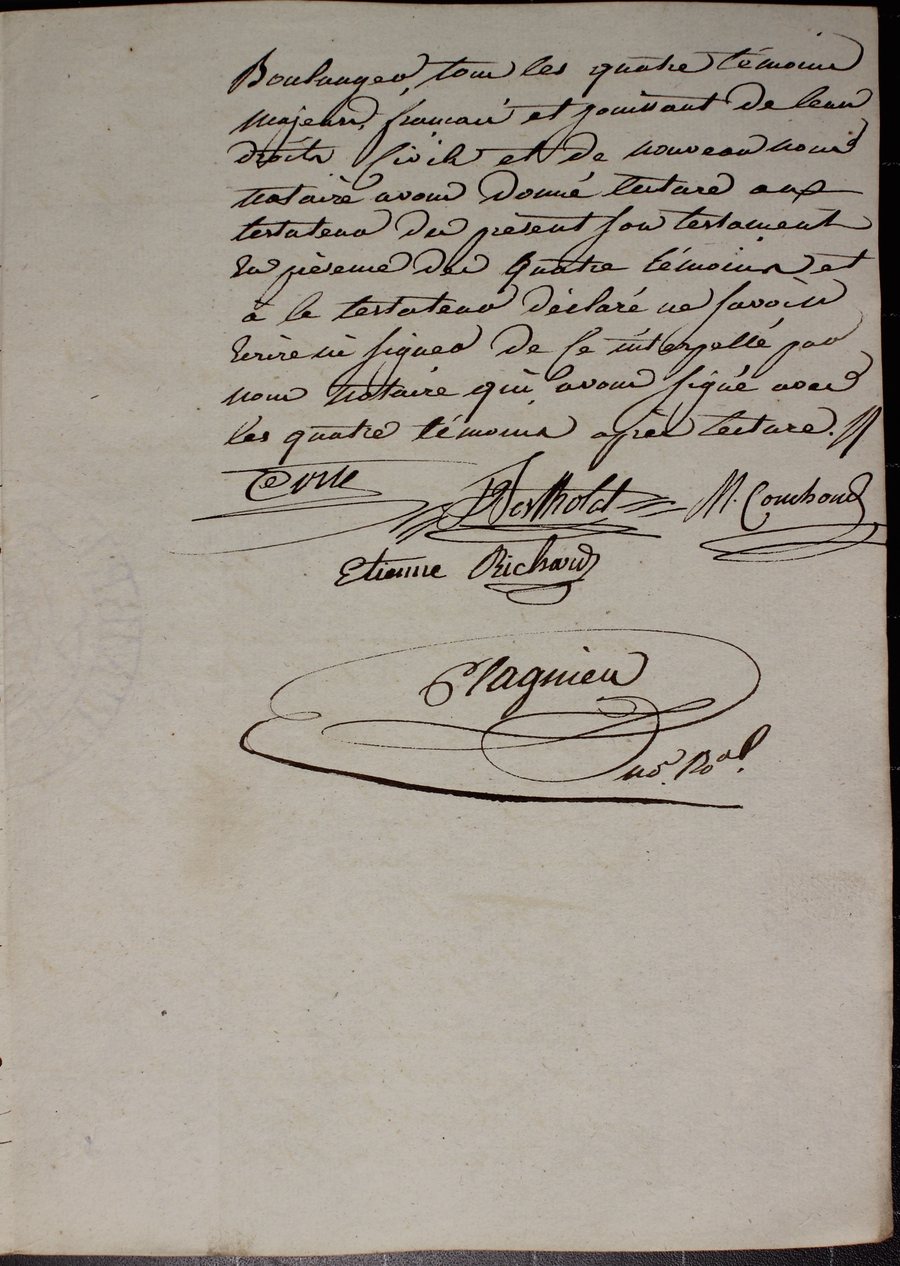 Boulanger, tous les quatre témoins
majeurs, français et jouissant de leurs
droits civils et de nouveau nous
notaire avons donné lecture aux
testateur du présent son testament
en présence des quatre témoins et
à le testateur déclaré ne savoir
écrire ni signer de ce interpellé par
nous notaire qui avons signé avec
les quatre témoins après lecture. //
Berthold M. Couchoud
Etienne Richard
Plagnieu
no. Roal.